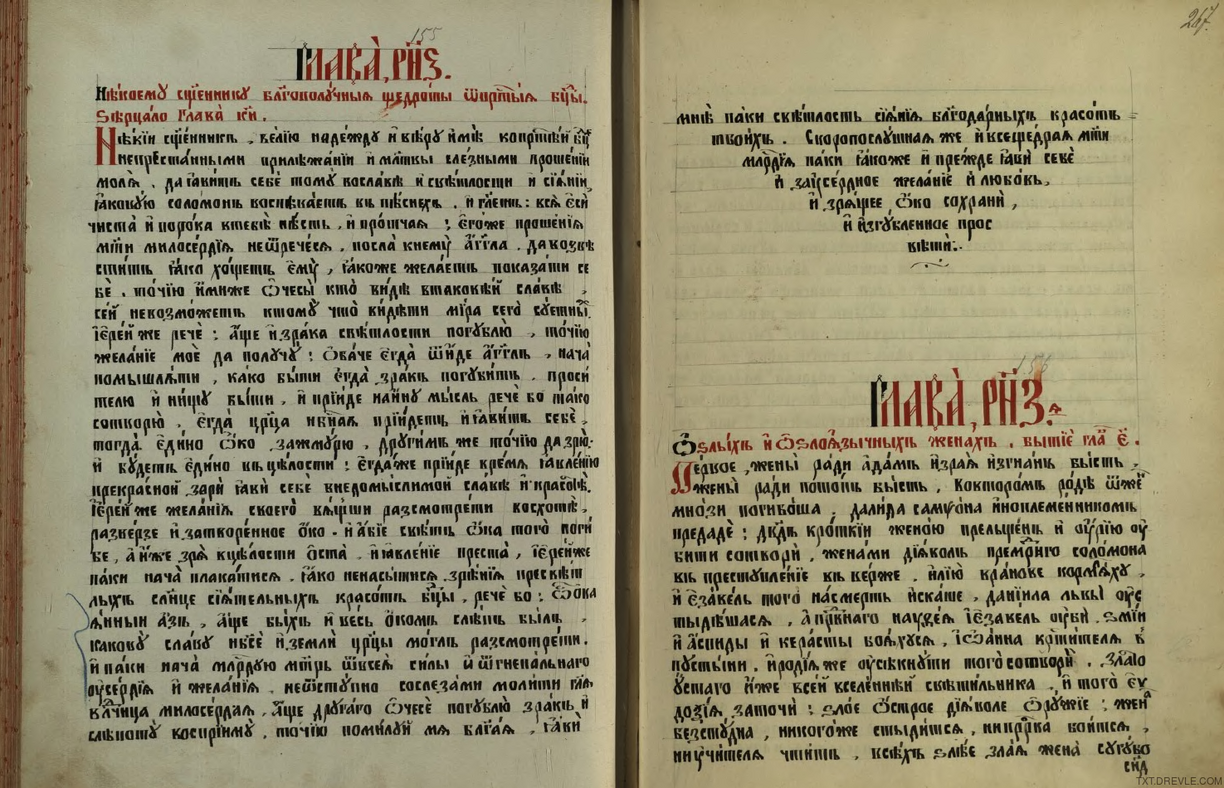 155
Глава̀, РН҃Ѕ.
Нѣкоему сщ҃еннику бл҃гополучныя щедроты ѿпрт҃ыя бц҃ы.
Зерцало глава к҃и.
Нѣкїи сщ҃енникъ, велїю надежду и вѣру имѣ копрт҃ѣи бц҃ѣ
инепрестанными прилѣжанїи и мл҃твы слезными прошенїи
моля, даꙗвитъ себѣ тому вославѣ и свѣтлости и сїянїи,
ꙗковую соломонъ воспѣваетъ въ пѣснехъ, и гл҃етъ: вся еси
чиста и порока втебѣ нѣсть, и протчая; егоже прошенїя
мт҃и милосердїя неѿречеся, посла книему аг҃гла, давозвѣ
ститъ ꙗко хощетъ ему, ꙗкоже желаетъ показати се
бѣ, точїю имиже ѡчесы кто видѣ втаковѣй славѣ,
сей невозможетъ ктому что видѣти мїра сего суетныѣ.
Іерей же рече: аще и зрака свѣтлости погублю, точїю
желанїе мое да получу: ѡбаче егда ѿиде аг҃глъ, нача
помышляти, како быти егда зракъ погубитъ, проси
телю и нищу быти, и прїиде наину мысль рече бо тако
сотворю, егда цр҃ца нбн҃ая прїидетъ иꙗвитъ себѣ,
тогда едино ѡко зажмурю, другимъ же точїю да зрю.
и будетъ едино въ цѣлости: егдаже прїиде время ꙗвленїю
прекрасной зари ꙗви себе внедомыслимой славѣ и красоѣ.
Іерей же желанїя своего вящши разсмотрѣти восхотѣ,
разверзе и затворенное ѡко. и абїе свѣтъ ѡка того поги
бе, а имже зря вцѣлости ѡста, иꙗвленїе преста, іерейже
паки нача плакатися, ꙗко ненасытися зрѣнїя пресвѣт
лыхъ слн҃це сїятельныхъ красотъ бц҃ы, рече бо: ѽока
янныи азъ, аще быхъ и весь ѡкомъ слѣпъ былъ,
какову славу нб҃сѣ и земли цр҃цы моглъ разсмотрѣти.
и паки нача млрд҃ую мт҃рь ѿвсея силы и ѿгненальнаго
усердїя и желанїя, неѿступно сослезами молити гл҃я
вл҃чица милосердая, аще другаго ѡчесе погублю зракъ, и
слѣпоту воспрїиму, точїю помилуй мя благая, ꙗви
267.
мнѣ паки свѣтлость сїянїя благодарныхъ красотъ
твоихъ. Скоропослушная же и всещедрая мт҃и
млрд҃їя паки ꙗкоже и прежде ꙗви себѐ
и заусердное желанїе и любовь,
и зрящее ѡко сохрани,
и изгубленное прос
вѣти:.
156
Глава̀, РН҃З.
Ѽзлыхъ и ѽзлоязычныхъ женахъ, бытїе гла҃ е҃.
Первое, жены ради адамъ израя изгнанъ бысть,
жены ради потопъ бысть, вокторомъ родѣ ѿнеѣ
мнози погибоша, далида самсона иноплеменникомъ
предаде: дв҃дъ кроткїи женою прельщенъ и урїю оу
бити сотвори, женами дїяволъ премрд҃аго соломона
въ преступленїе въ верже, илїю кранове кормляху,
и езавель того насмерть искаше, данїила львы оус
тыдѣшася, а прв҃наго наууѳея іезавель оуби. змїи
и аспиды и керасты бояхуся, іѡанна крт҃ителя в
пустыни, иродїя же усѣкнути того сотвори, злато
устаго иже всей вселеннѣй свѣтильника, и того еѵ
доѯїя заточи: злое ѡстрое дїяволе ѡружїе: жена
безстудна, никогоже стыдится, нипрр҃ка боится,
ниучителя чтитъ, всѣхъ злѣе злая жена сугубо
сид
TXT.DREVLE.COM